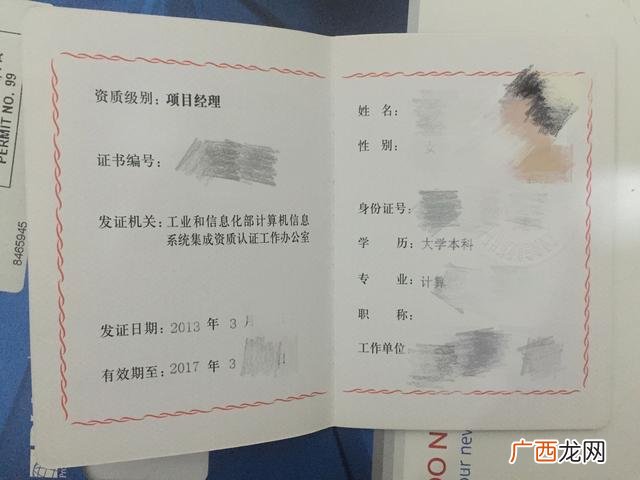 资质级别：项目经理
证书编号：
发证机关：工业和信息化部计算机信息
系统集成资质认证工作办公室
发证日期：2013 年 3 月
有效期至：2017 年 3
姓 名：
性 别： 女
身份证号：
学 历：大学本科
专 业：计算
职 称：
工作单位
PERMIT NO. 99
8465945
OO N
our new
广西龙网